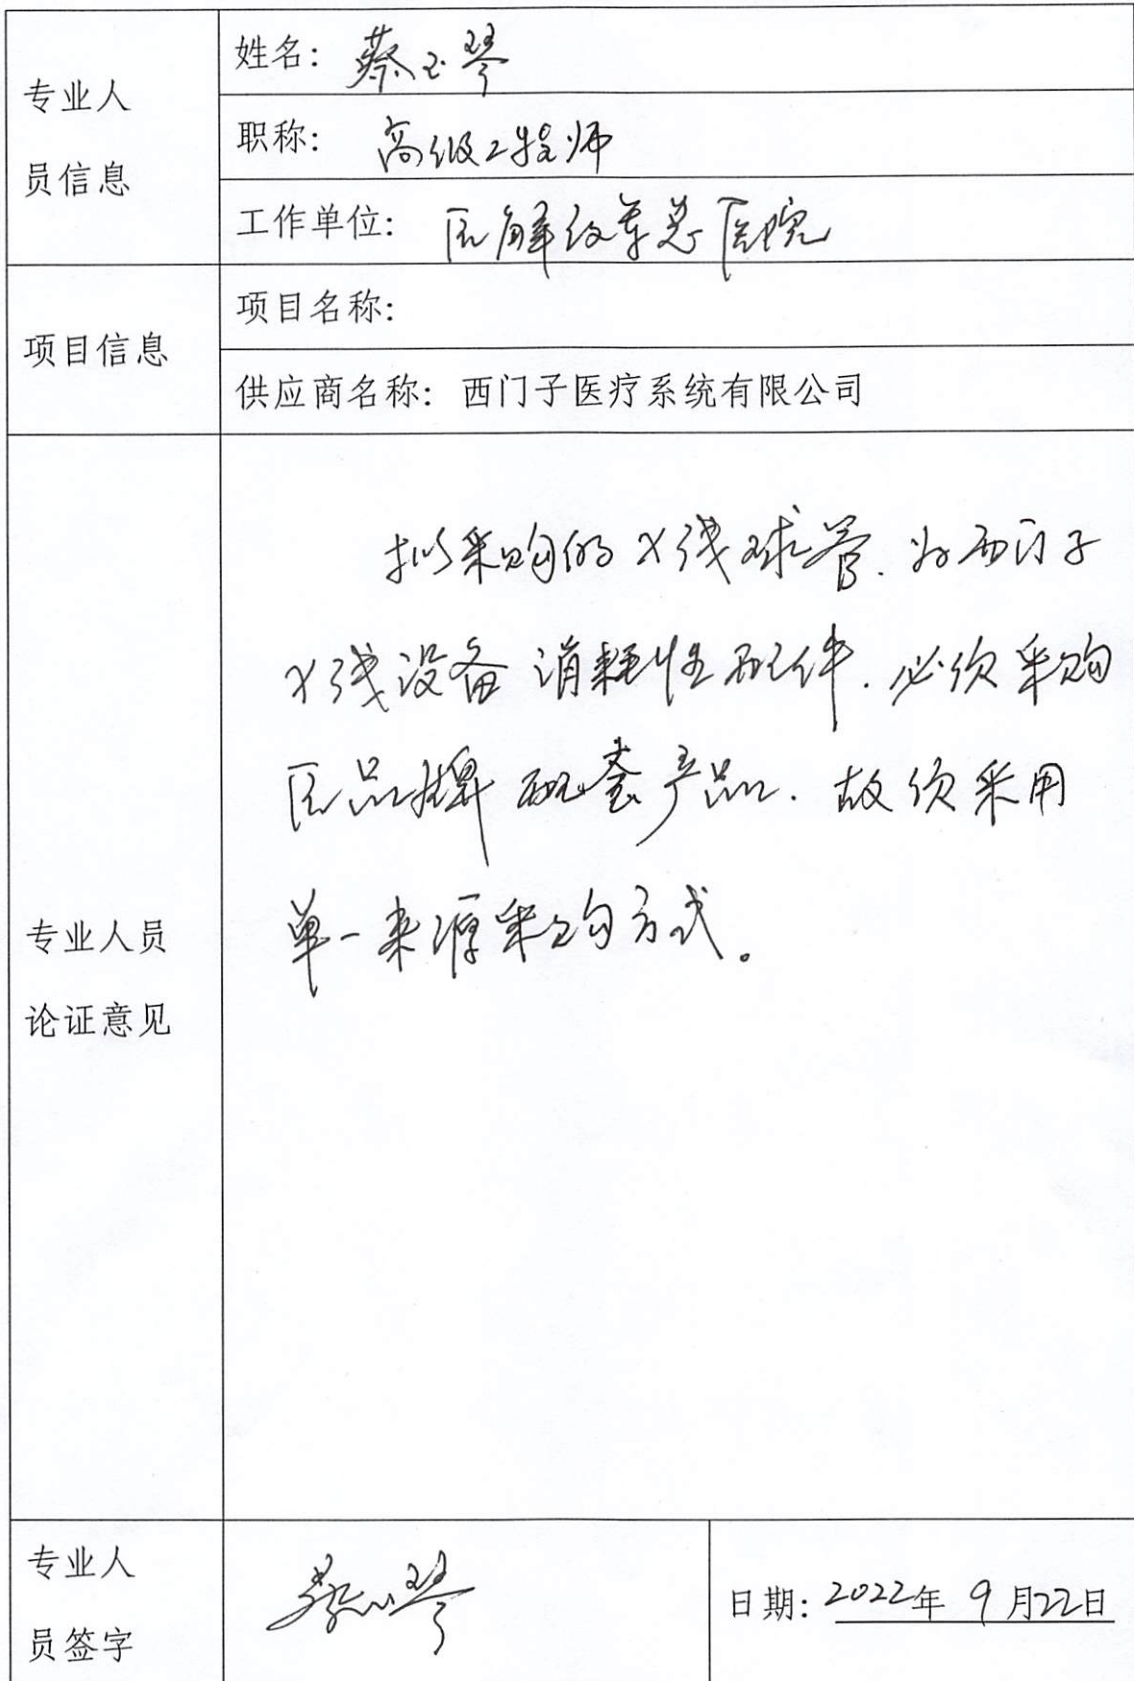 专业人
员信息
姓名: 蔡玉琴
职称: 高级工程师
工作单位: 原解放军总医院
项目信息
项目名称:
供应商名称: 西门子医疗系统有限公司
专业人员
论证意见
拟采购的X线球管.为西门子
X线设备消耗性配件.必须采购
原品牌配套产品.故须采用
单一来源采购方式。
专业人
员签字
蔡玉琴
日期: 2022年 9月22日